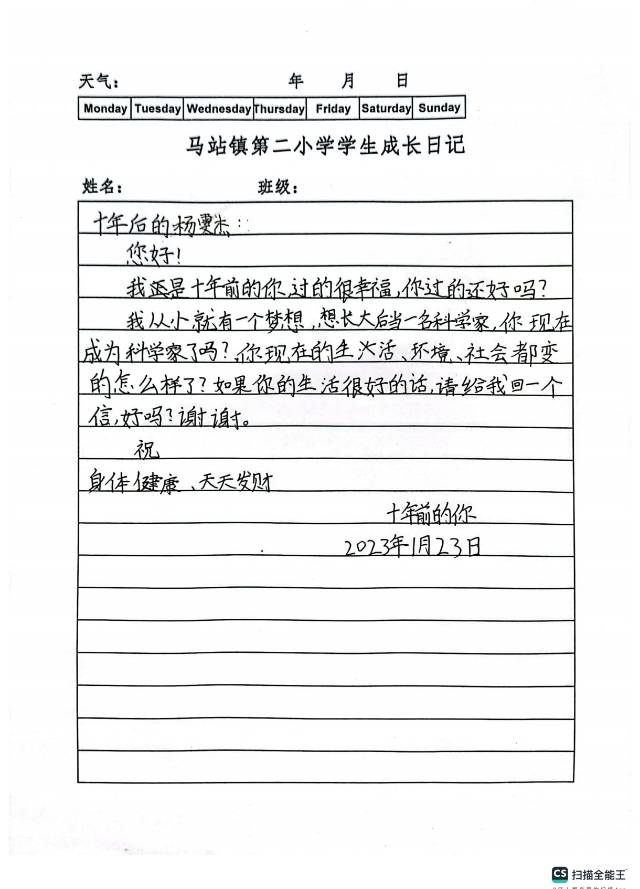 天气： 年 月 日
Monday Tuesday Wednesday Thursday Friday Saturday Sunday
马站镇第二小学学生成长日记
姓名： 班级：
十年后的杨雯杰：
您好！
我还是十年前的你过的很幸福，你过的还好吗？
我从小就有一个梦想，想长大后当一名科学家，你现在
成为科学家了吗？你现在的生活、环境、社会都变
的怎么样了？如果你的生活很好的话，请给我回一个
信，好吗？谢谢。
祝
身体健康、天天发财
十年前的你
2023年1月23日
CS 扫描全能王